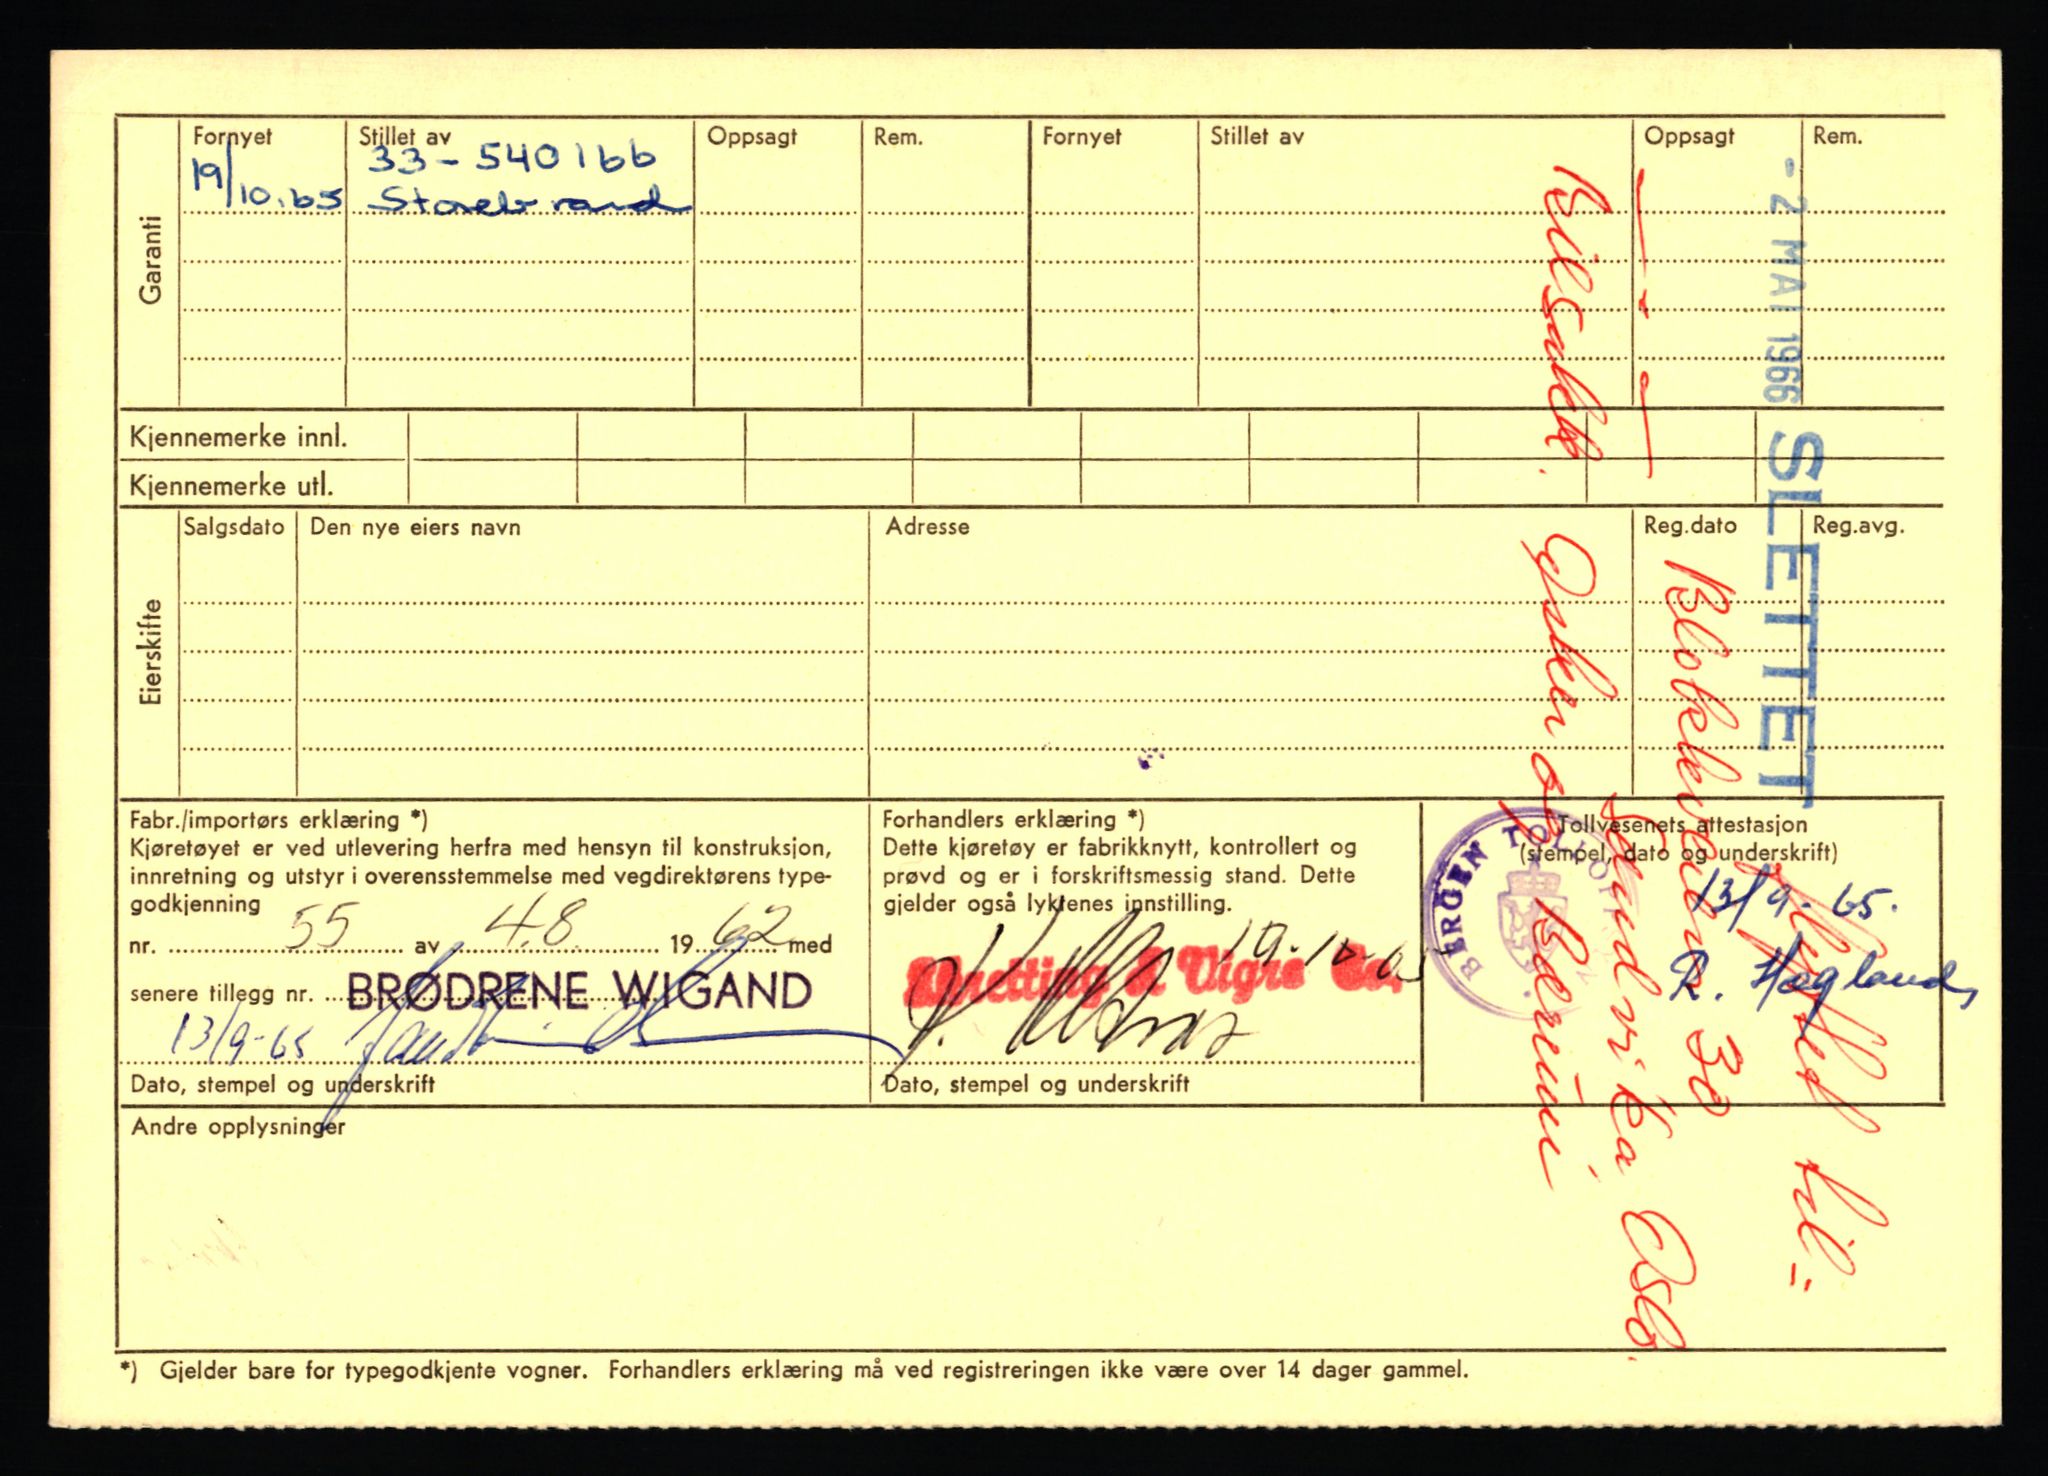 Garanti
Fornyet Stillet av Oppsagt Rem. Fornyet Stillet av Oppsagt Rem.
19/10.65 33-540166
Storebrand
Kjennemerke innl.
Kjennemerke utl.
Eierskifte
Salgsdato Den nye eiers navn Adresse Reg.dato Reg.avg.
- 2 MAI 1966 SLETTET
til =
30
Sandvika Oslo.
Bilsakk. Asker og Bærum
Fabr./importørs erklæring *)
Kjøretøyet er ved utlevering herfra med hensyn til konstruksjon,
innretning og utstyr i overensstemmelse med vegdirektørens type-
godkjenning
nr. 55 av 4.8 1962 med
senere tillegg nr. BRØDRENE WIGAND
13/9-65
Dato, stempel og underskrift
Forhandlers erklæring *)
Dette kjøretøy er fabrikknytt, kontrollert og
prøvd og er i forskriftsmessig stand. Dette
gjelder også lyktenes innstilling.
19-10-65
& Vigre Co.
Dato, stempel og underskrift
Tollvesenets attestasjon
(stempel, dato og underskrift)
BERGEN
13/9-65.
R. Hagland
Andre opplysninger
*) Gjelder bare for typegodkjente vogner. Forhandlers erklæring må ved registreringen ikke være over 14 dager gammel.